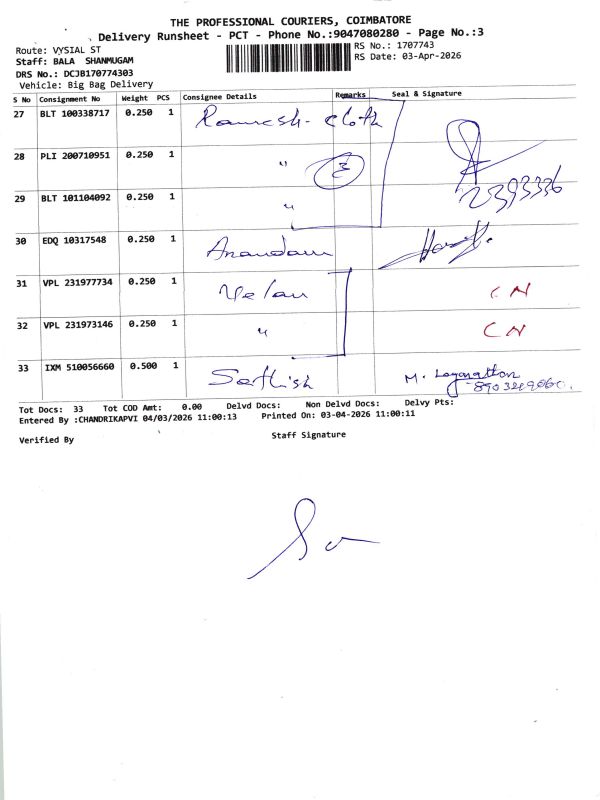 THE PROFESSIONAL COURIERS, COIMBATORE
Delivery Runsheet - PCT - Phone No.:9047080280 - Page No.:3
Route: VYSIAL ST
RS No.: 1707743
Staff: BALA SHANMUGAM
RS Date: 03-Apr-2026
DRS No.: DCJB170774303
Vehicle: Big Bag Delivery
S No Consignment No Weight PCS Consignee Details Remarks Seal & Signature
27 BLT 100338717 0.250 1 Ramesh- cloth
28 PLI 200710951 0.250 1 " 3
29 BLT 101104092 0.250 1 "
30 EDQ 10317548 0.250 1 Anandam
31 VPL 231977734 0.250 1 Velan CN
32 VPL 231973146 0.250 1 " CN
33 IXM 510056660 0.500 1 Sathish M.
Tot Docs: 33 Tot COD Amt: 0.00 Delvd Docs: Non Delvd Docs: Delvy Pts:
Entered By :CHANDRIKAPVI 04/03/2026 11:00:13 Printed On: 03-04-2026 11:00:11
Verified By Staff Signature